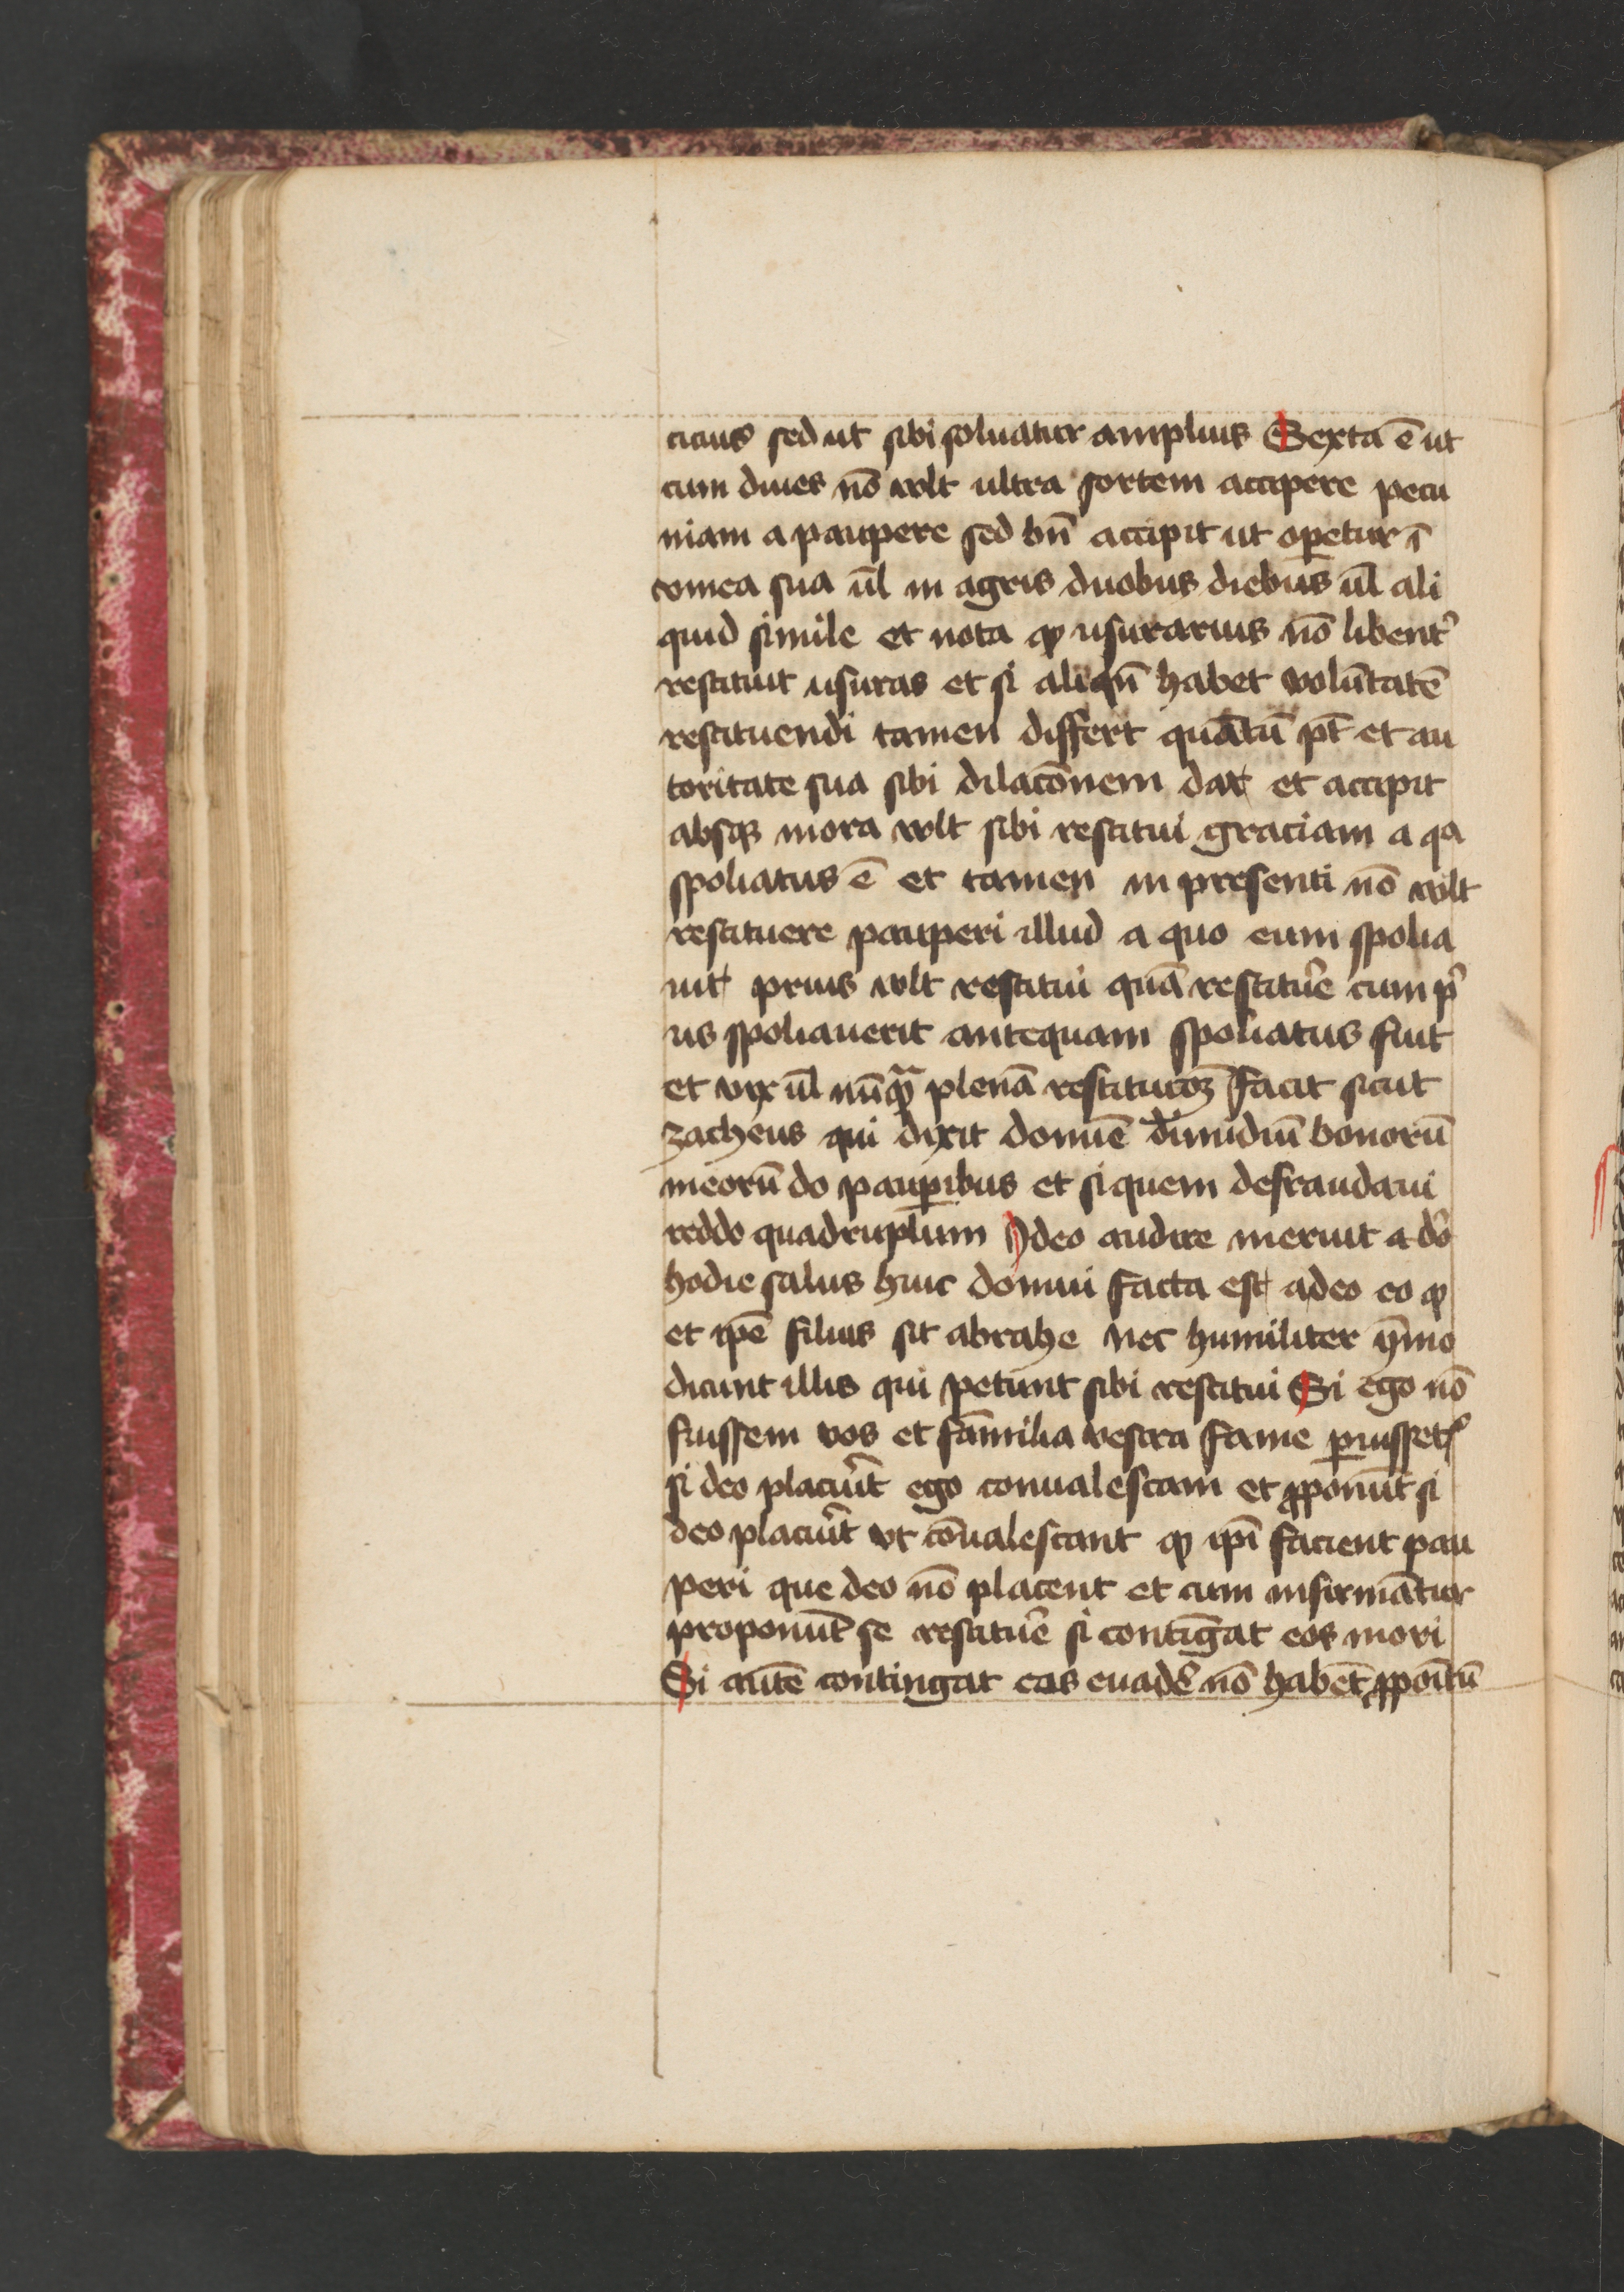 cicius sed ut sibi soluatur amplius Sexta ē ut
cum diues nō vult ultra sortem accipere pecu
niam a paupere sed bn̄ accipit ut oꝑetur ī
vinea sua ūl in agris duobus diebus ūl ali
quid simile et nota ꝙ usurarius nō libent᷒
restituit usuras et si aliqn̄ habet volūtatē
restituendi tamen differt quātū pt̄ et au
toritate sua sibi dilacōnem dat et accipit
absqꝫ mora vult sibi restitui graciam a qa
spoliatus ē et tamen in presenti nō vult
restituere pauperi illud a quo eum spolia
uit prius vult restitui quā restitue᷒ cum p᷒
us spoliauerit antequam spoliatus fuit
et vix ūl nūqᷓ plenā restitucōꝫ facit sicut
zacheus qui dixit domīe dimidiū bonorū
meorū do pauꝑibus et si quem defraudaui
reddo quadruplum Ideo audire meruit a do᷒
hodie salus huic domui facta est a deo eo ꝙ
et ip̄e filius sit abrahe nec humiliter ȳmo
dicunt illis qui petunt sibi restitui Si ego nō
fuissem vos et familia vestra fame ꝑiissetꝭ
si deo placu᷒it ego conualescam et ꝓponūt si
deo placu᷒it ut cōualescant ꝙ ip̄i facient pau
peri que deo nō placent et cum infirmātur
proponūt se restitue᷒ si contīgat eos mori
Si autē contingat eos euade᷒ nō habēt ꝓpoītū